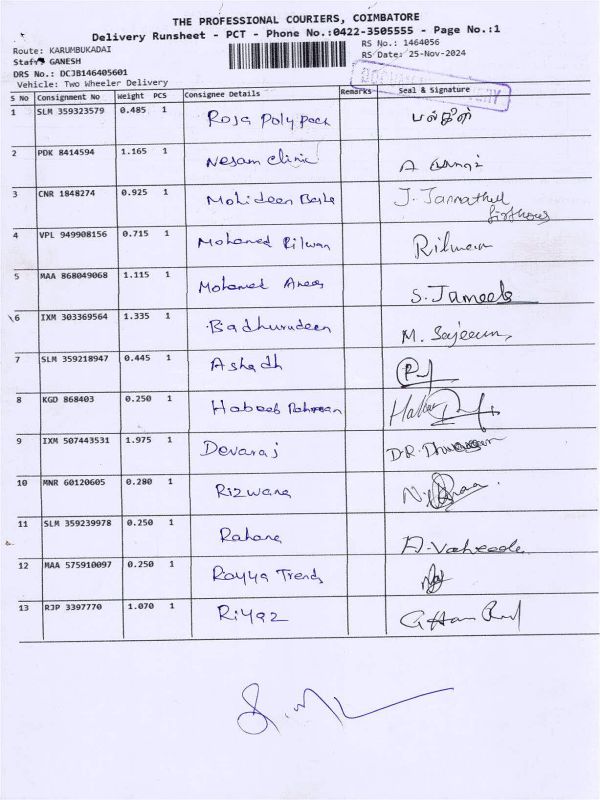 THE PROFESSIONAL COURIERS, COIMBATORE
Delivery Runsheet - PCT - Phone No.:0422-3505555 - Page No.:1
Route: KARUMBUKADAI RS No.: 1464056
Staff: GANESH RS Date: 25-Nov-2024
DRS No.: DCJB146405601
Vehicle: Two Wheeler Delivery
S No Consignment No Weight PCS Consignee Details Remarks Seal & Signature
1 SLM 359323579 0.485 1 Roja Poly pack
2 PDK 8414594 1.165 1 Nesam clinic A
3 CNR 1848274 0.925 1 Mohideen J. Jannathul
firthous
4 VPL 949908156 0.715 1 Mohamed Rilwan Rilwan
5 MAA 868049068 1.115 1 Mohamed Anees S. Jameela
6 IXM 303369564 1.335 1 Badhurudeen M. Sajeeun
7 SLM 359218947 0.445 1 Ashadh
8 KGD 868403 0.250 1 Habeeb Rahman
9 IXM 507443531 1.975 1 Devaraj D.R.
10 MNR 60120605 0.280 1 Rizwana
11 SLM 359239978 0.250 1 Rahana A. Vaheeda
12 MAA 575910097 0.250 1 Rayya Trends
13 RJP 3397770 1.070 1 Riyaz